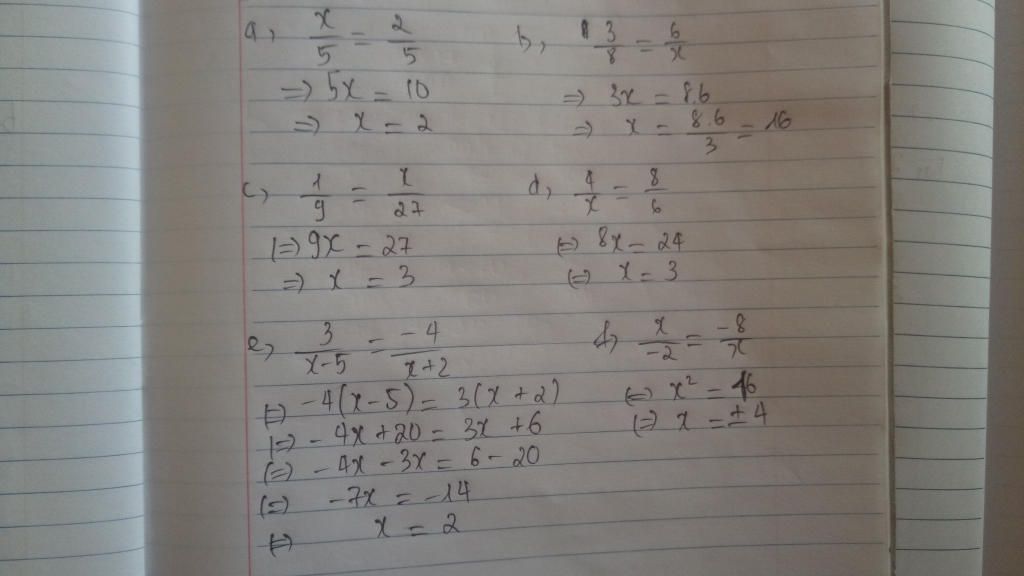 a, x/5 = 2/5
⇒ 5x = 10
⇒ x = 2
b, 3/8 = 6/x
⇒ 3x = 8.6
⇒ x = 8.6/3 = 16
c, 1/9 = x/27
⇔ 9x = 27
⇒ x = 3
d, 4/x = 8/6
⇔ 8x = 24
⇔ x = 3
e, 3/x-5 = -4/x+2
⇔ -4(x-5) = 3(x+2)
⇔ -4x+20 = 3x+6
⇔ -4x-3x = 6-20
⇔ -7x = -14
⇔ x = 2
f, x/-2 = -8/x
⇔ x² = 16
⇔ x = ±4